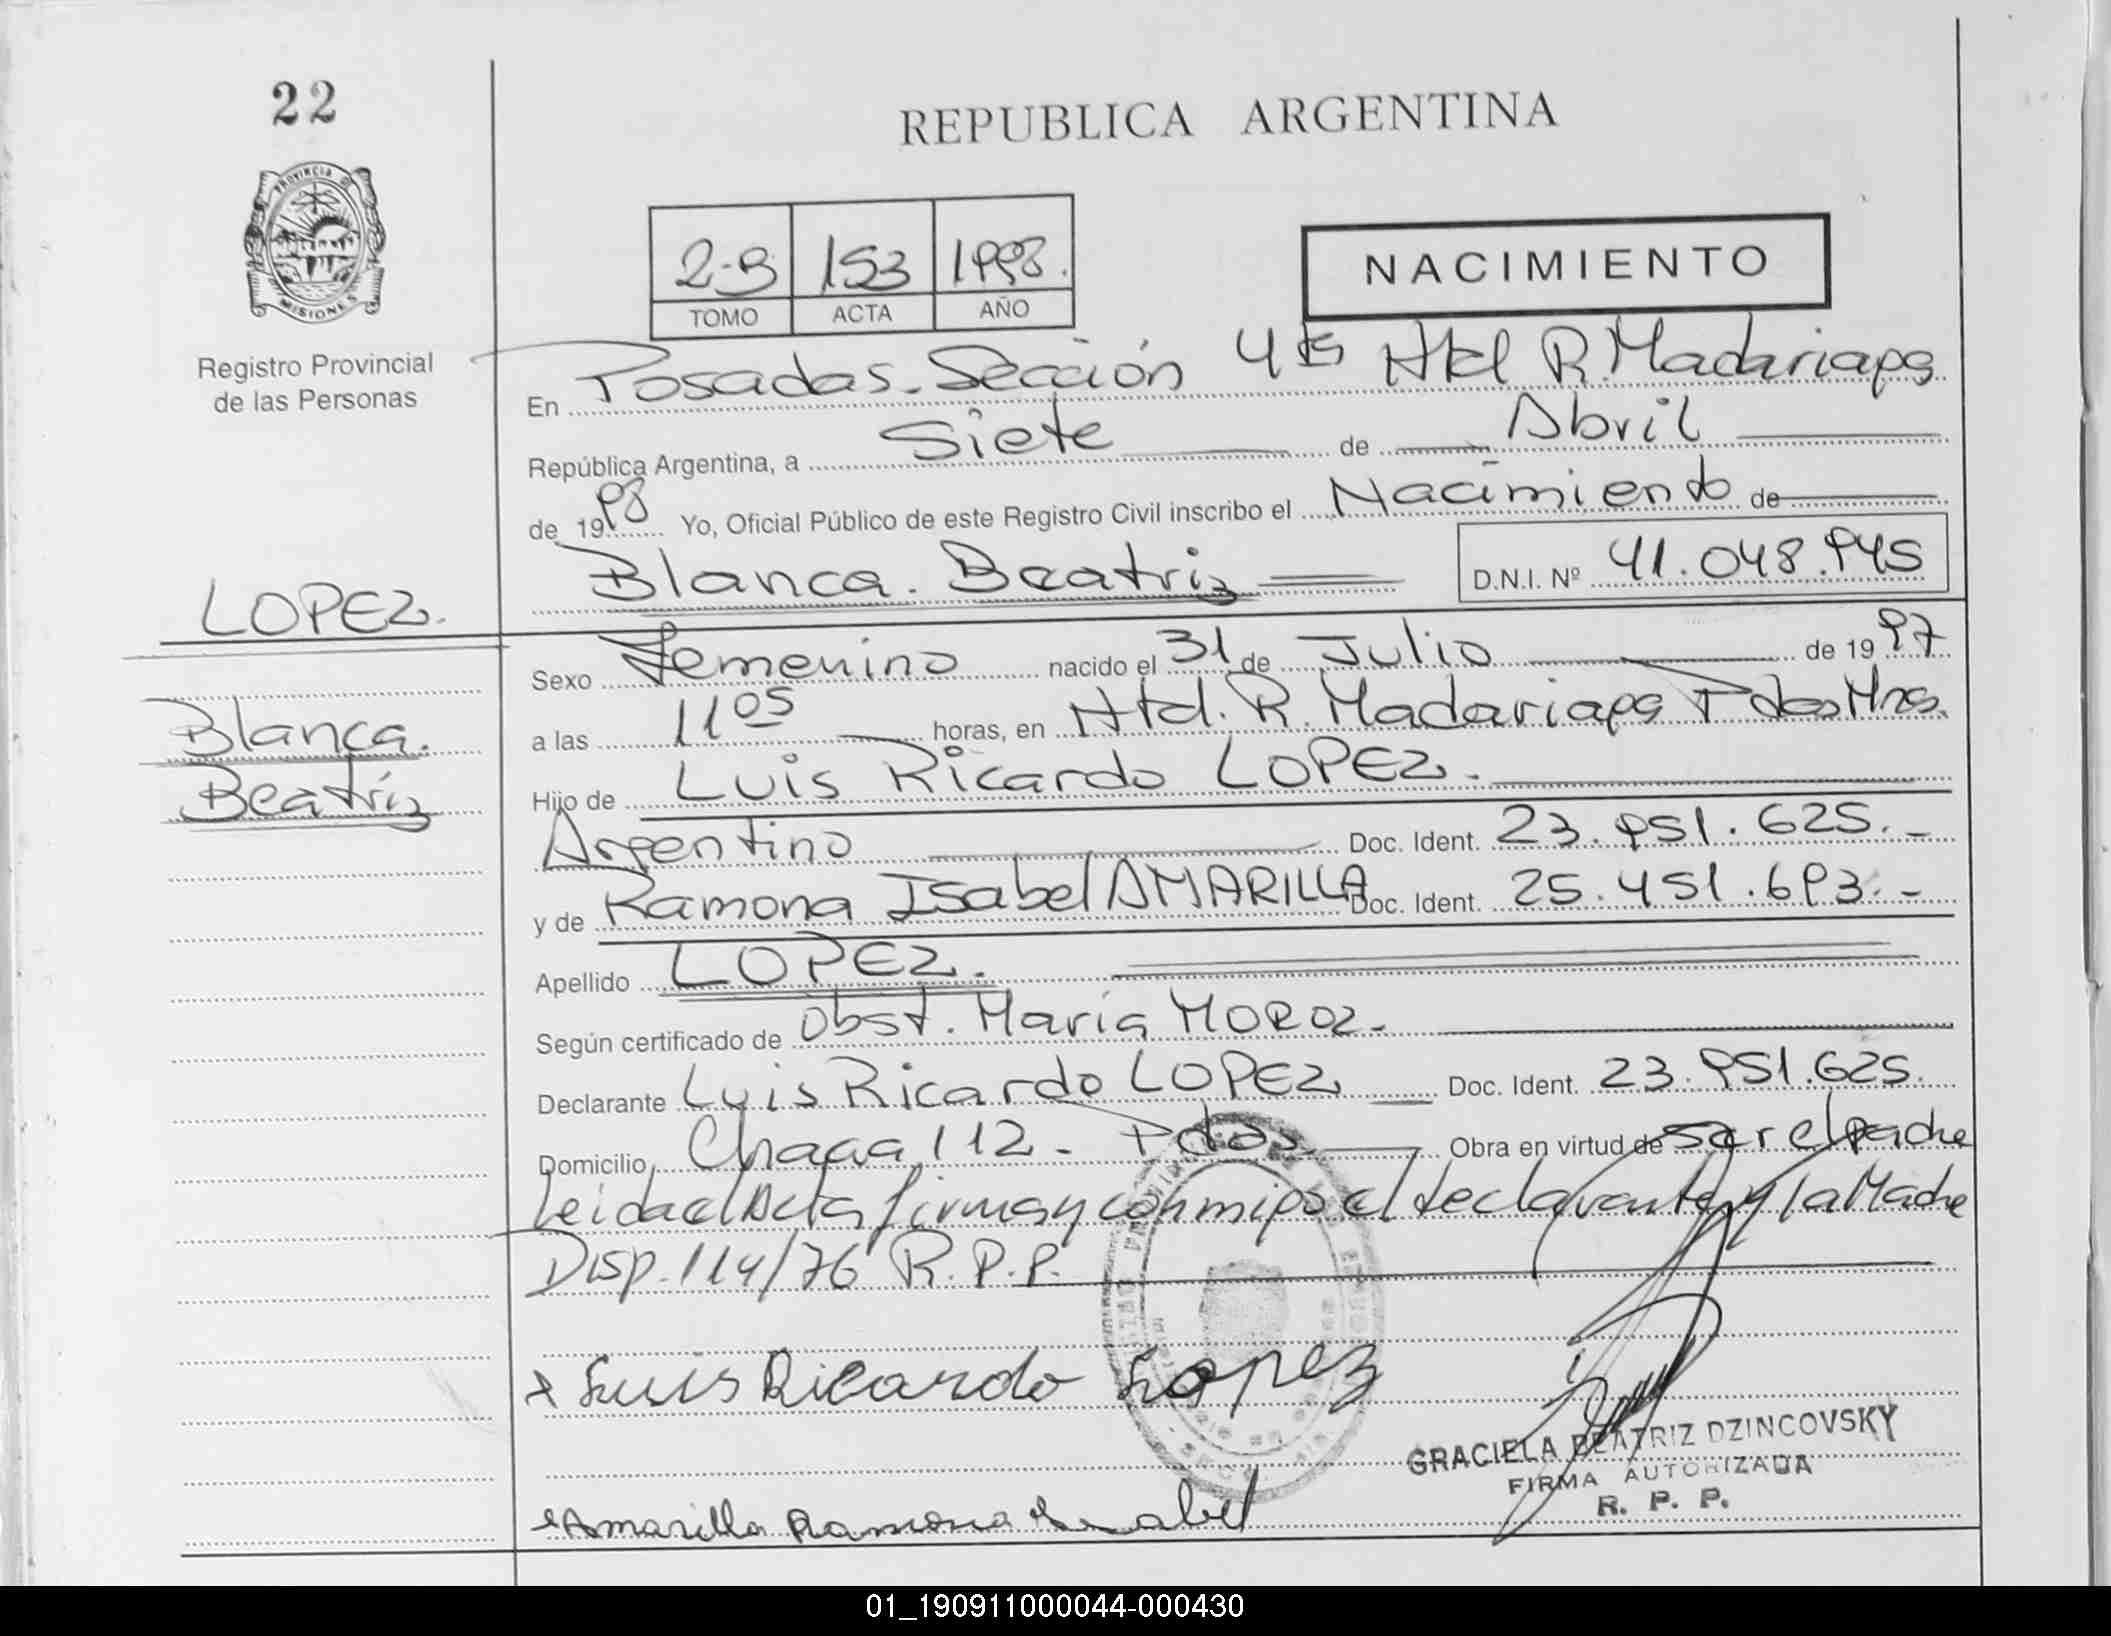 22
REPUBLICA ARGENTINA
PROVINCIA DE
MISIONES
Registro Provincial
de las Personas
2-B 153 1998.
TOMO ACTA AÑO
NACIMIENTO
En Posadas. Sección 4ta Htal R. Madariaga
República Argentina, a Siete de Abril
de 1998 Yo, Oficial Público de este Registro Civil inscribo el Nacimiento de
Blanca. Beatriz D.N.I. Nº 41.048.945
LOPEZ.
Blanca.
Beatriz
Sexo Femenino nacido el 31 de Julio de 1997
a las 11 05 horas, en Htal. R. Madariaga Pdas Mnes.
Hijo de Luis Ricardo LOPEZ.
Argentino Doc. Ident. 23.951.625.-
y de Ramona Isabel AMARILLA Doc. Ident. 25.451.693.-
Apellido LOPEZ.
Según certificado de Obst. María MOROZ.
Declarante Luis Ricardo LOPEZ Doc. Ident. 23.951.625.
Domicilio Chaca 112 - Pdas Obra en virtud de Ser el Padre
Leida el Acta firman conmigo el declarante y la Madre
Disp. 114/76 R.P.P.
x Luis Ricardo Lopez
GRACIELA BEATRIZ DZINCOVSKY
FIRMA AUTORIZADA
R. P. P.
x Amarilla Ramona Isabel
01_190911000044-000430